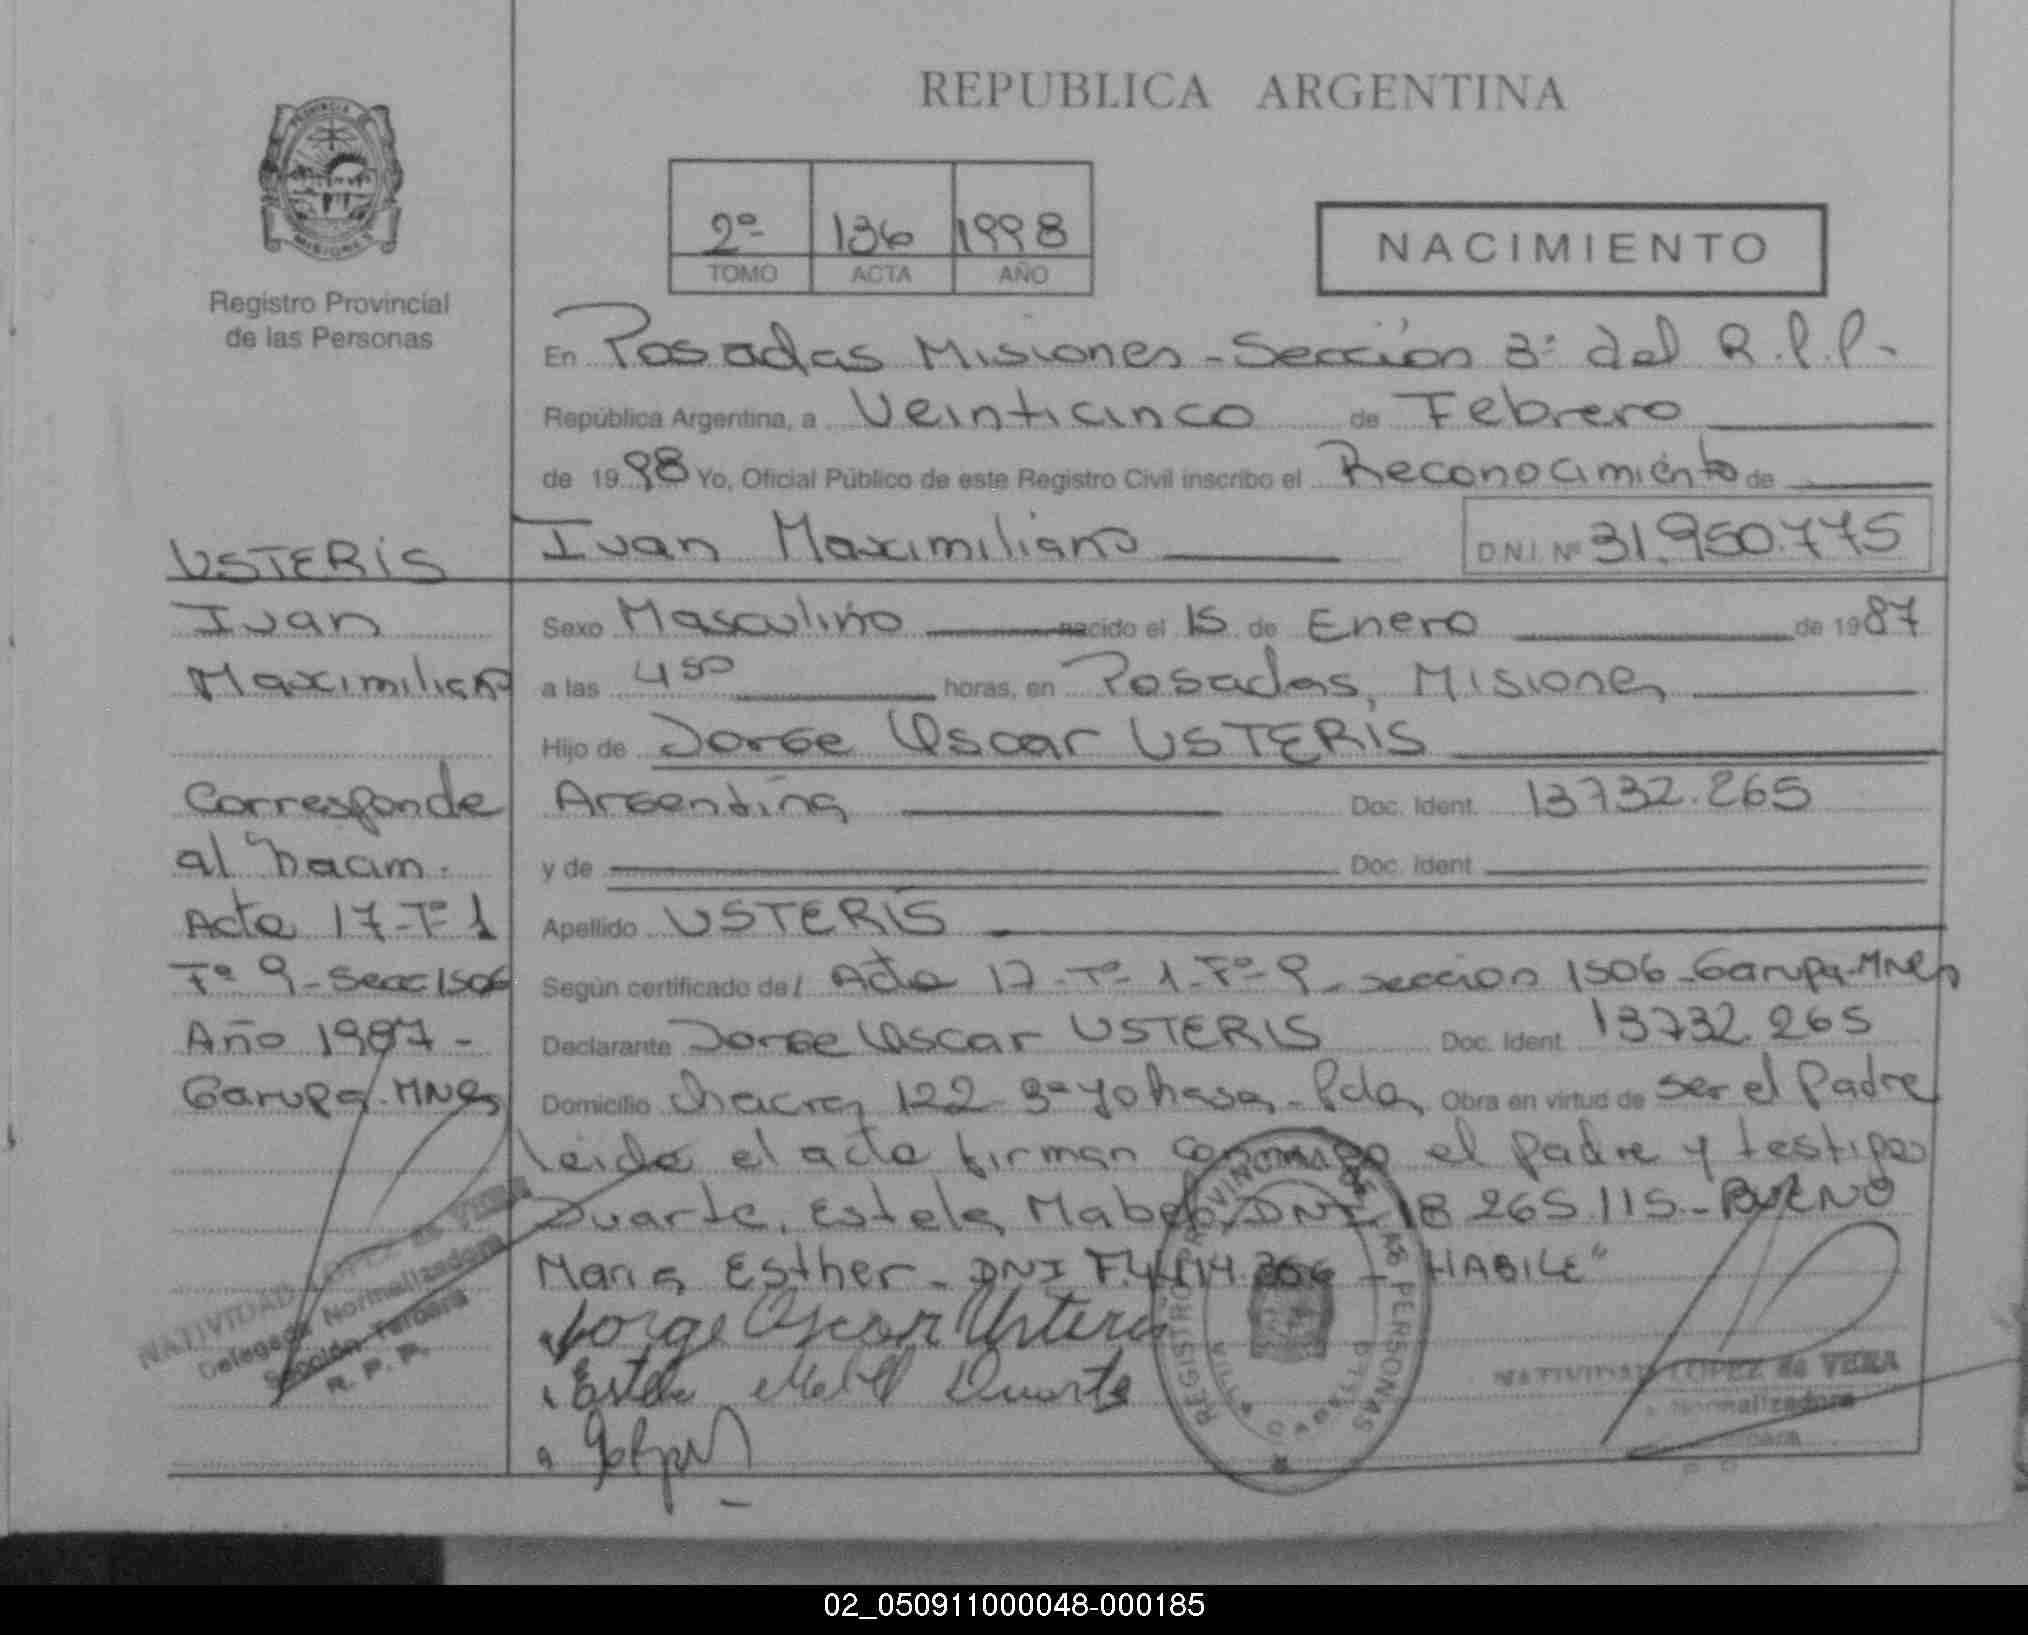 REPUBLICA ARGENTINA
PROVINCIA DE
MISIONES
Registro Provincial
de las Personas
2º 136 1998
TOMO ACTA AÑO
NACIMIENTO
En Posadas Misiones - Sección 3ª del R.P.P.-
República Argentina, a Veinticinco de Febrero
de 1998 Yo, Oficial Público de este Registro Civil inscribo el Reconocimiento de
Ivan Maximiliano D.N.I. Nº 31.950.775
Sexo Masculino nacido el 15 de Enero de 1987
a las 4 50 horas, en Posadas, Misiones
Hijo de Jorge Oscar USTERIS
Argentina Doc. Ident. 13732.265
y de Doc. Ident.
Apellido USTERIS
Según certificado de/ Acta 17-Tº-1-Fº-9-sección 1506-Garupa-Mnes
Declarante Jorge Oscar USTERIS Doc. Ident. 13732.265
Domicilio chacra 122-3ª yohasa-Pdas Obra en virtud de ser el Padre
leida el acta firman conmigo el padre y testigos
Duarte, Estela Mabel DNI 18 265.115-BUENO
Maria Esther-DNI F. - HABILE"
Jorge Oscar Usteris
Estela Mabel Duarte
USTERIS
Ivan
Maximiliano
Corresponde
al nacim.
Acta 17-Tº 1
Fº 9-Secc 1506
Año 1987-
Garupa-MNes
NATIVIDAD LOPEZ de VERA
Delegada Normalizadora
Sección Tercera
R. P. P.
REGISTRO PROVINCIAL DE LAS PERSONAS
NATIVIDAD LOPEZ de VERA
Normalizadora
02_050911000048-000185